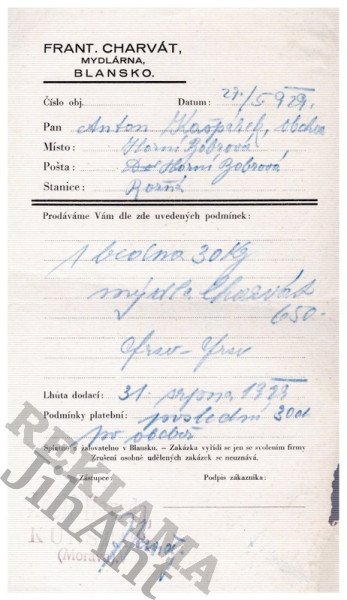 FRANT. CHARVÁT,
MYDLÁRNA,
BLANSKO.
Číslo obj. Datum: 27./5. 1929.
Pan Anton Kašpárek, obchod
Místo: Horní Bobrová
Pošta: Horní Bobrová
Stanice: Rožná
Prodáváme Vám dle zde uvedených podmínek:
1 bedna 30 Kg
mýdla Charvát
650.-
frco - frco
Lhůta dodací: 31. srpna 1929
Podmínky platební: poslední 30 d
po obdrž
Splatno a žalovatelno v Blansku. – Zakázka vyřídí se jen se svolením firmy
Zrušení osobně udělených zakázek se neuznává.
Zástupce: Podpis zákazníka:
(Morava)
REKLAMA
JihAnt